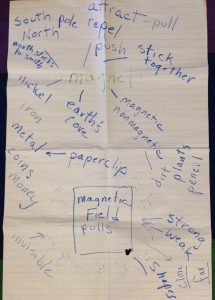 attract - pull
South pole repel
North push
north sticks to south
stick together
magnet
nickel
iron
metal
coins
money
earth's core
magnetic
nonmagnetic
paperclip
dirt
plants
pencil
magnetic
Field
pulls
strong
weak
invisible
shapes